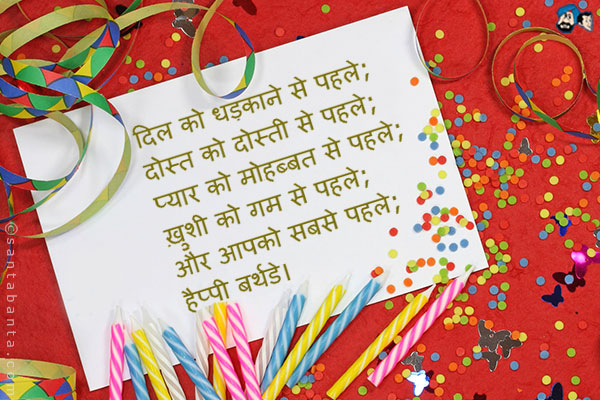 दिल को धड़काने से पहले;
दोस्त को दोस्ती से पहले;
प्यार को मोहब्बत से पहले;
ख़ुशी को गम से पहले;
और आपको सबसे पहले;
हैप्पी बर्थडे।
©santabanta.com